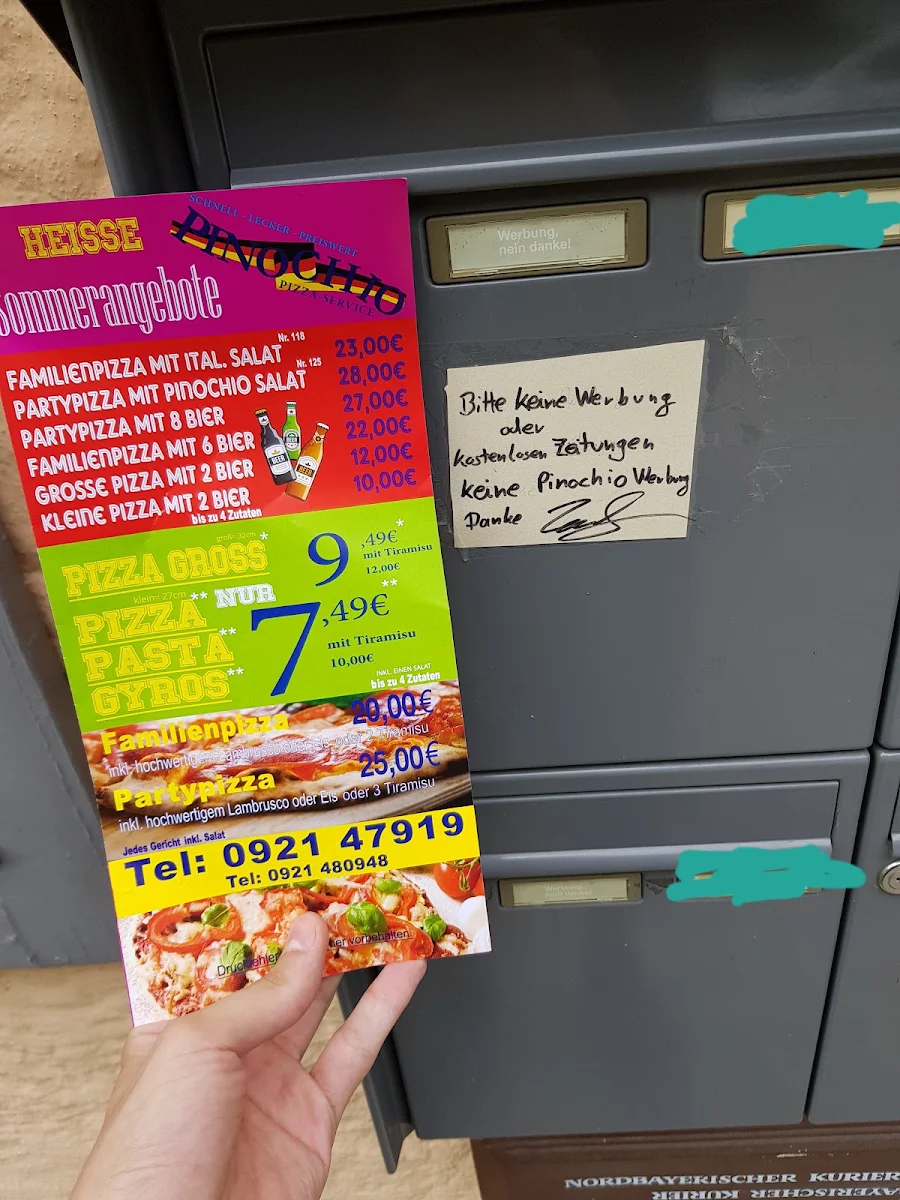 HEISSE
SCHNELL - LECKER - PREISWERT
PINOCHIO
PIZZA-SERVICE
Sommerangebote
FAMILIENPIZZA MIT ITAL. SALAT Nr. 118 23,00€
PARTYPIZZA MIT PINOCHIO SALAT Nr. 125 28,00€
PARTYPIZZA MIT 8 BIER 27,00€
FAMILIENPIZZA MIT 6 BIER 22,00€
GROSSE PIZZA MIT 2 BIER 12,00€
KLEINE PIZZA MIT 2 BIER 10,00€
bis zu 4 Zutaten
BEER
BEER
groß= 32cm
PIZZA GROSS* 9,49€*
mit Tiramisu
12,00€
klein= 27cm
PIZZA** NUR 7,49€**
PASTA**
GYROS**
mit Tiramisu
10,00€
INKL. EINEN SALAT
bis zu 4 Zutaten
Familienpizza 20,00€
inkl. hochwertigem Lambrusco oder Eis oder 2 Tiramisu
Partypizza 25,00€
inkl. hochwertigem Lambrusco oder Eis oder 3 Tiramisu
Jedes Gericht inkl. Salat
Tel: 0921 47919
Tel: 0921 480948
vorbehalten
Werbung,
nein danke!
Bitte keine Werbung
oder
kostenlosen Zeitungen
keine Pinochio Werbung
Danke
Werbung,
nein danke!
NORDBAYERISCHER KURIER